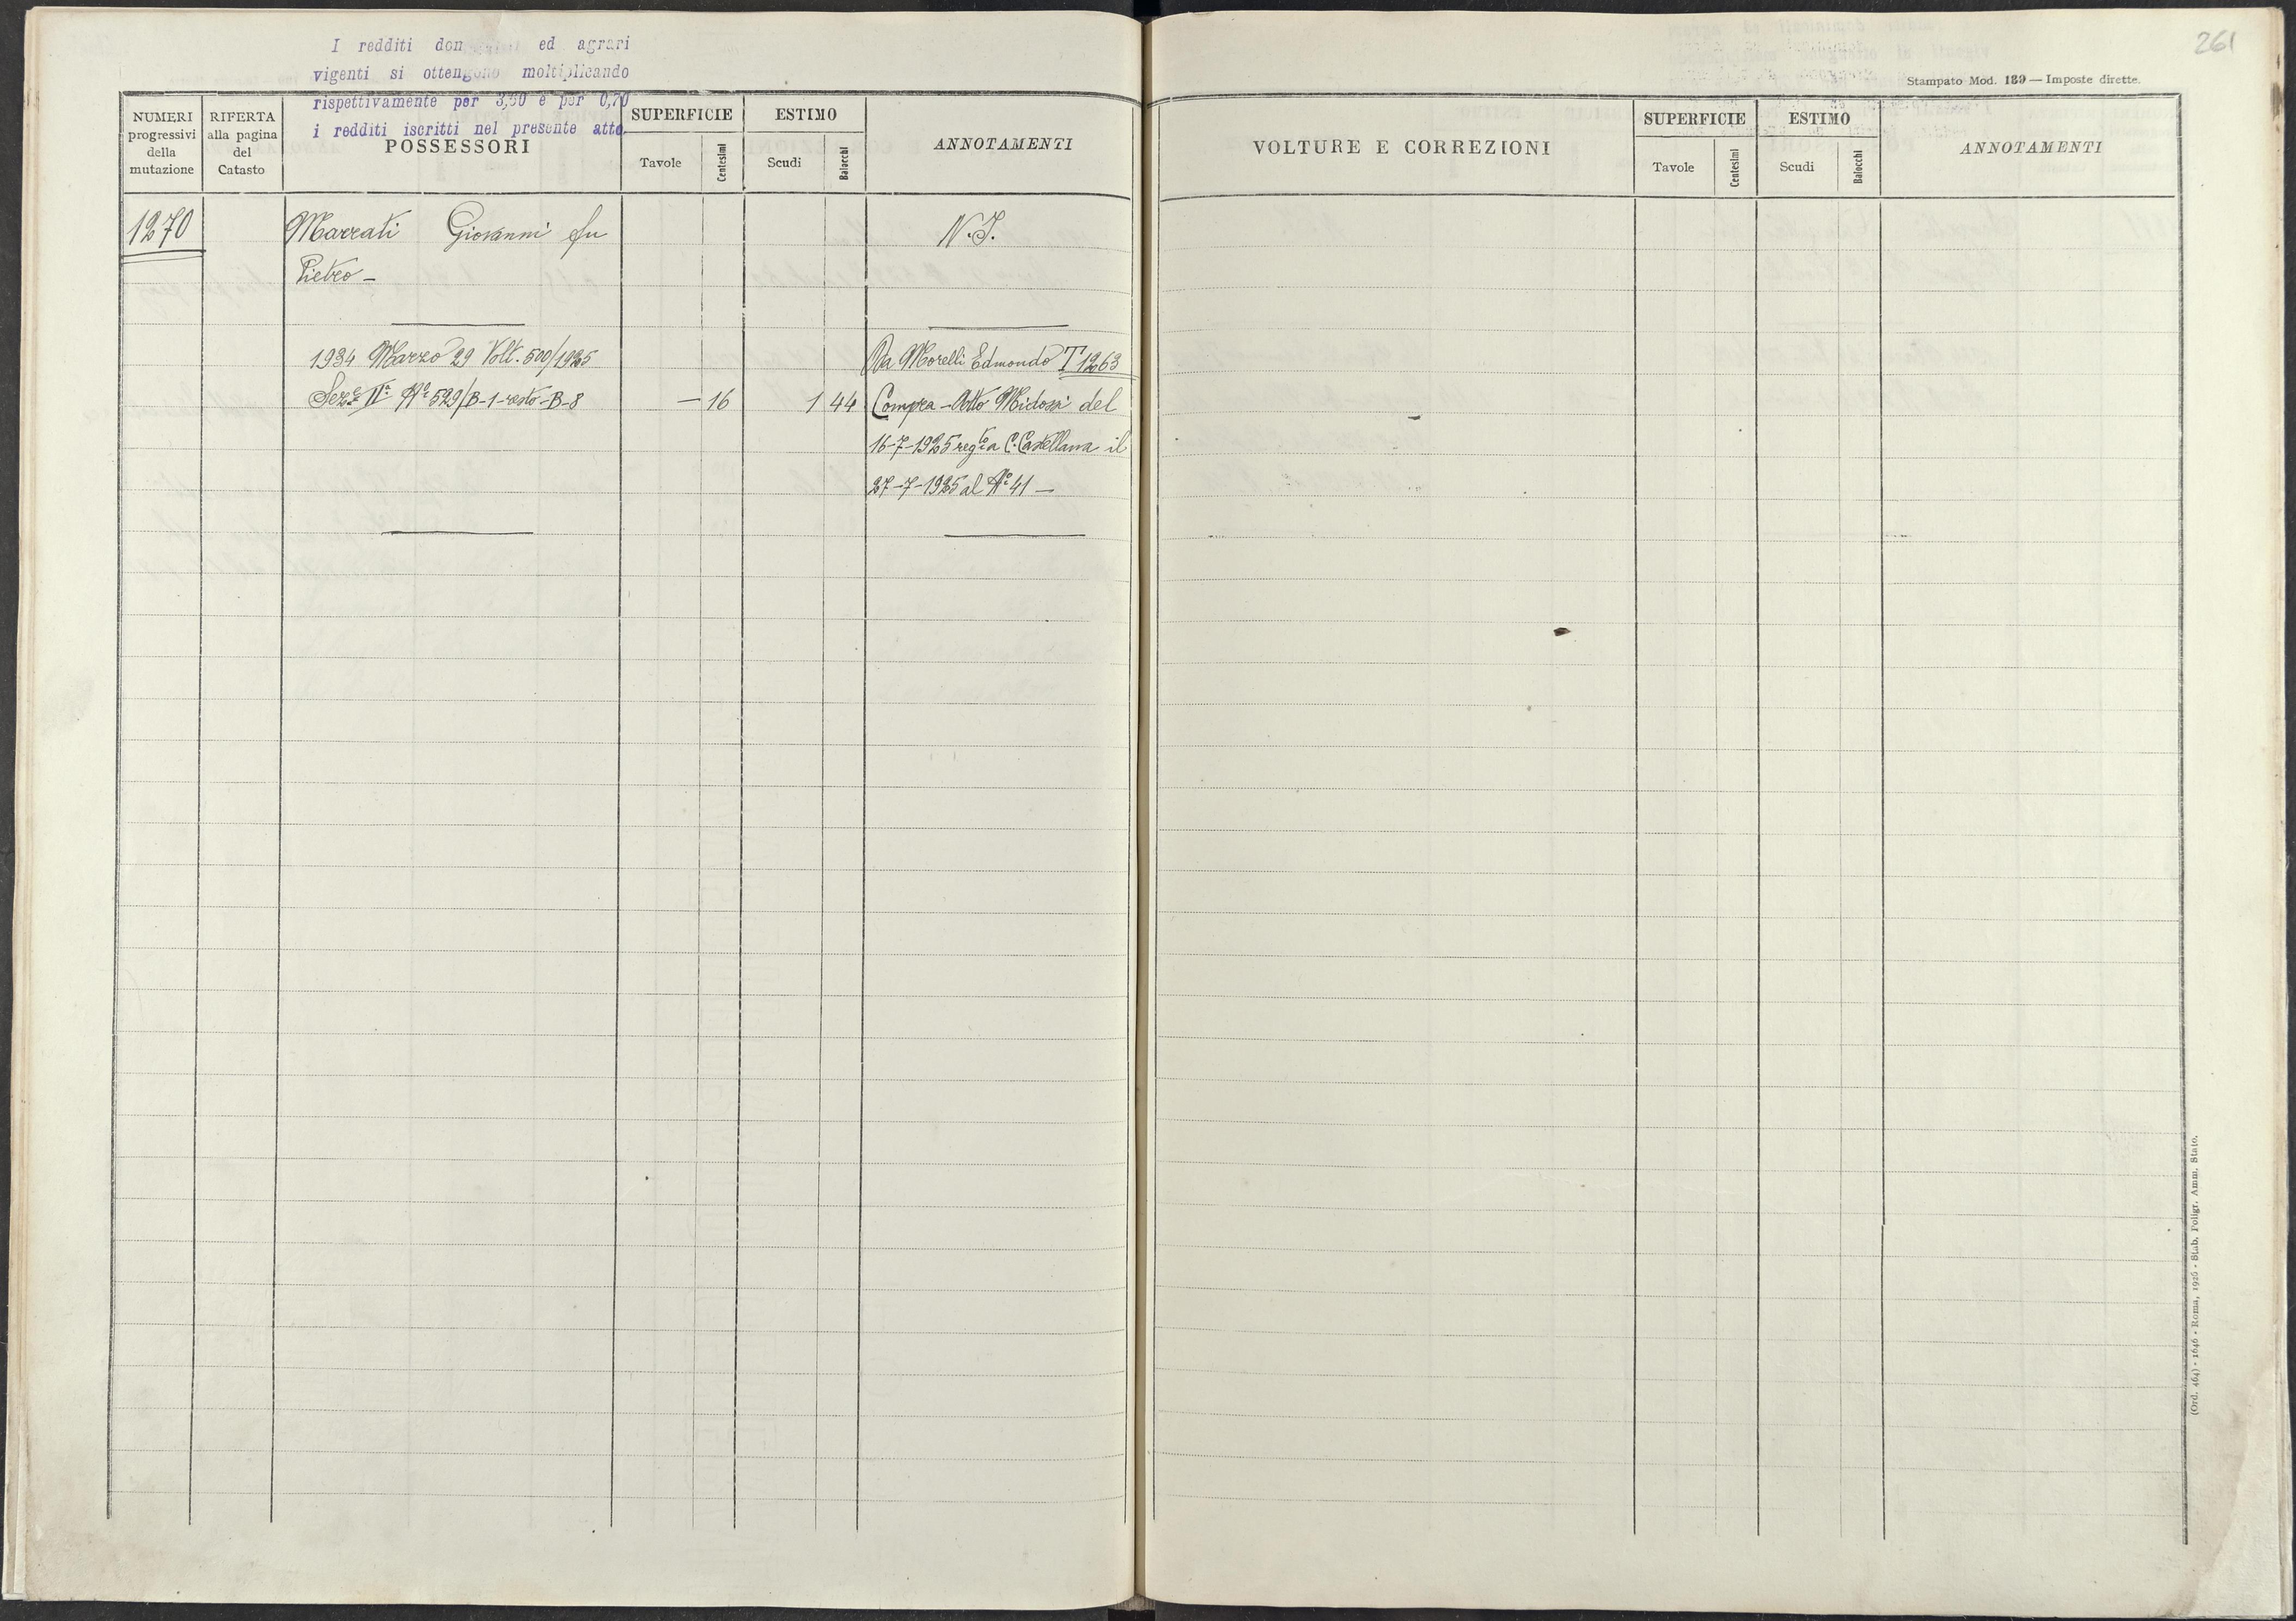 I redditi don ed agrari
vigenti si ottengono moltiplicando
rispettivamente per 3,50 e per 0,70
i redditi iscritti nel presente atto
NUMERI
progressivi
della
mutazione
RIFERTA
alla pagina
del
Catasto
POSSESSORI
SUPERFICIE
Tavole
Centesimi
ESTIMO
Scudi
Baiocchi
ANNOTAMENTI
1270
Marrati Giovanni fu
Pietro –
N. I.
1934 Marzo 29 Volt. 500/1925
Sez.e IIa No 529/B-1-resto-B-8
– 16
1 44
Da Morelli Edmondo T 1263
Compra – Atto Midossi del
16-7-1925 reg.to a C. Castellana il
27-7-1925 al No 41 –
261
Stampato Mod. 189 — Imposte dirette.
VOLTURE E CORREZIONI
SUPERFICIE
Tavole
Centesimi
ESTIMO
Scudi
Baiocchi
ANNOTAMENTI
(Ord. 464) - 1646 - Roma, 1926 - Stab. Poligr. Amm. Stato.